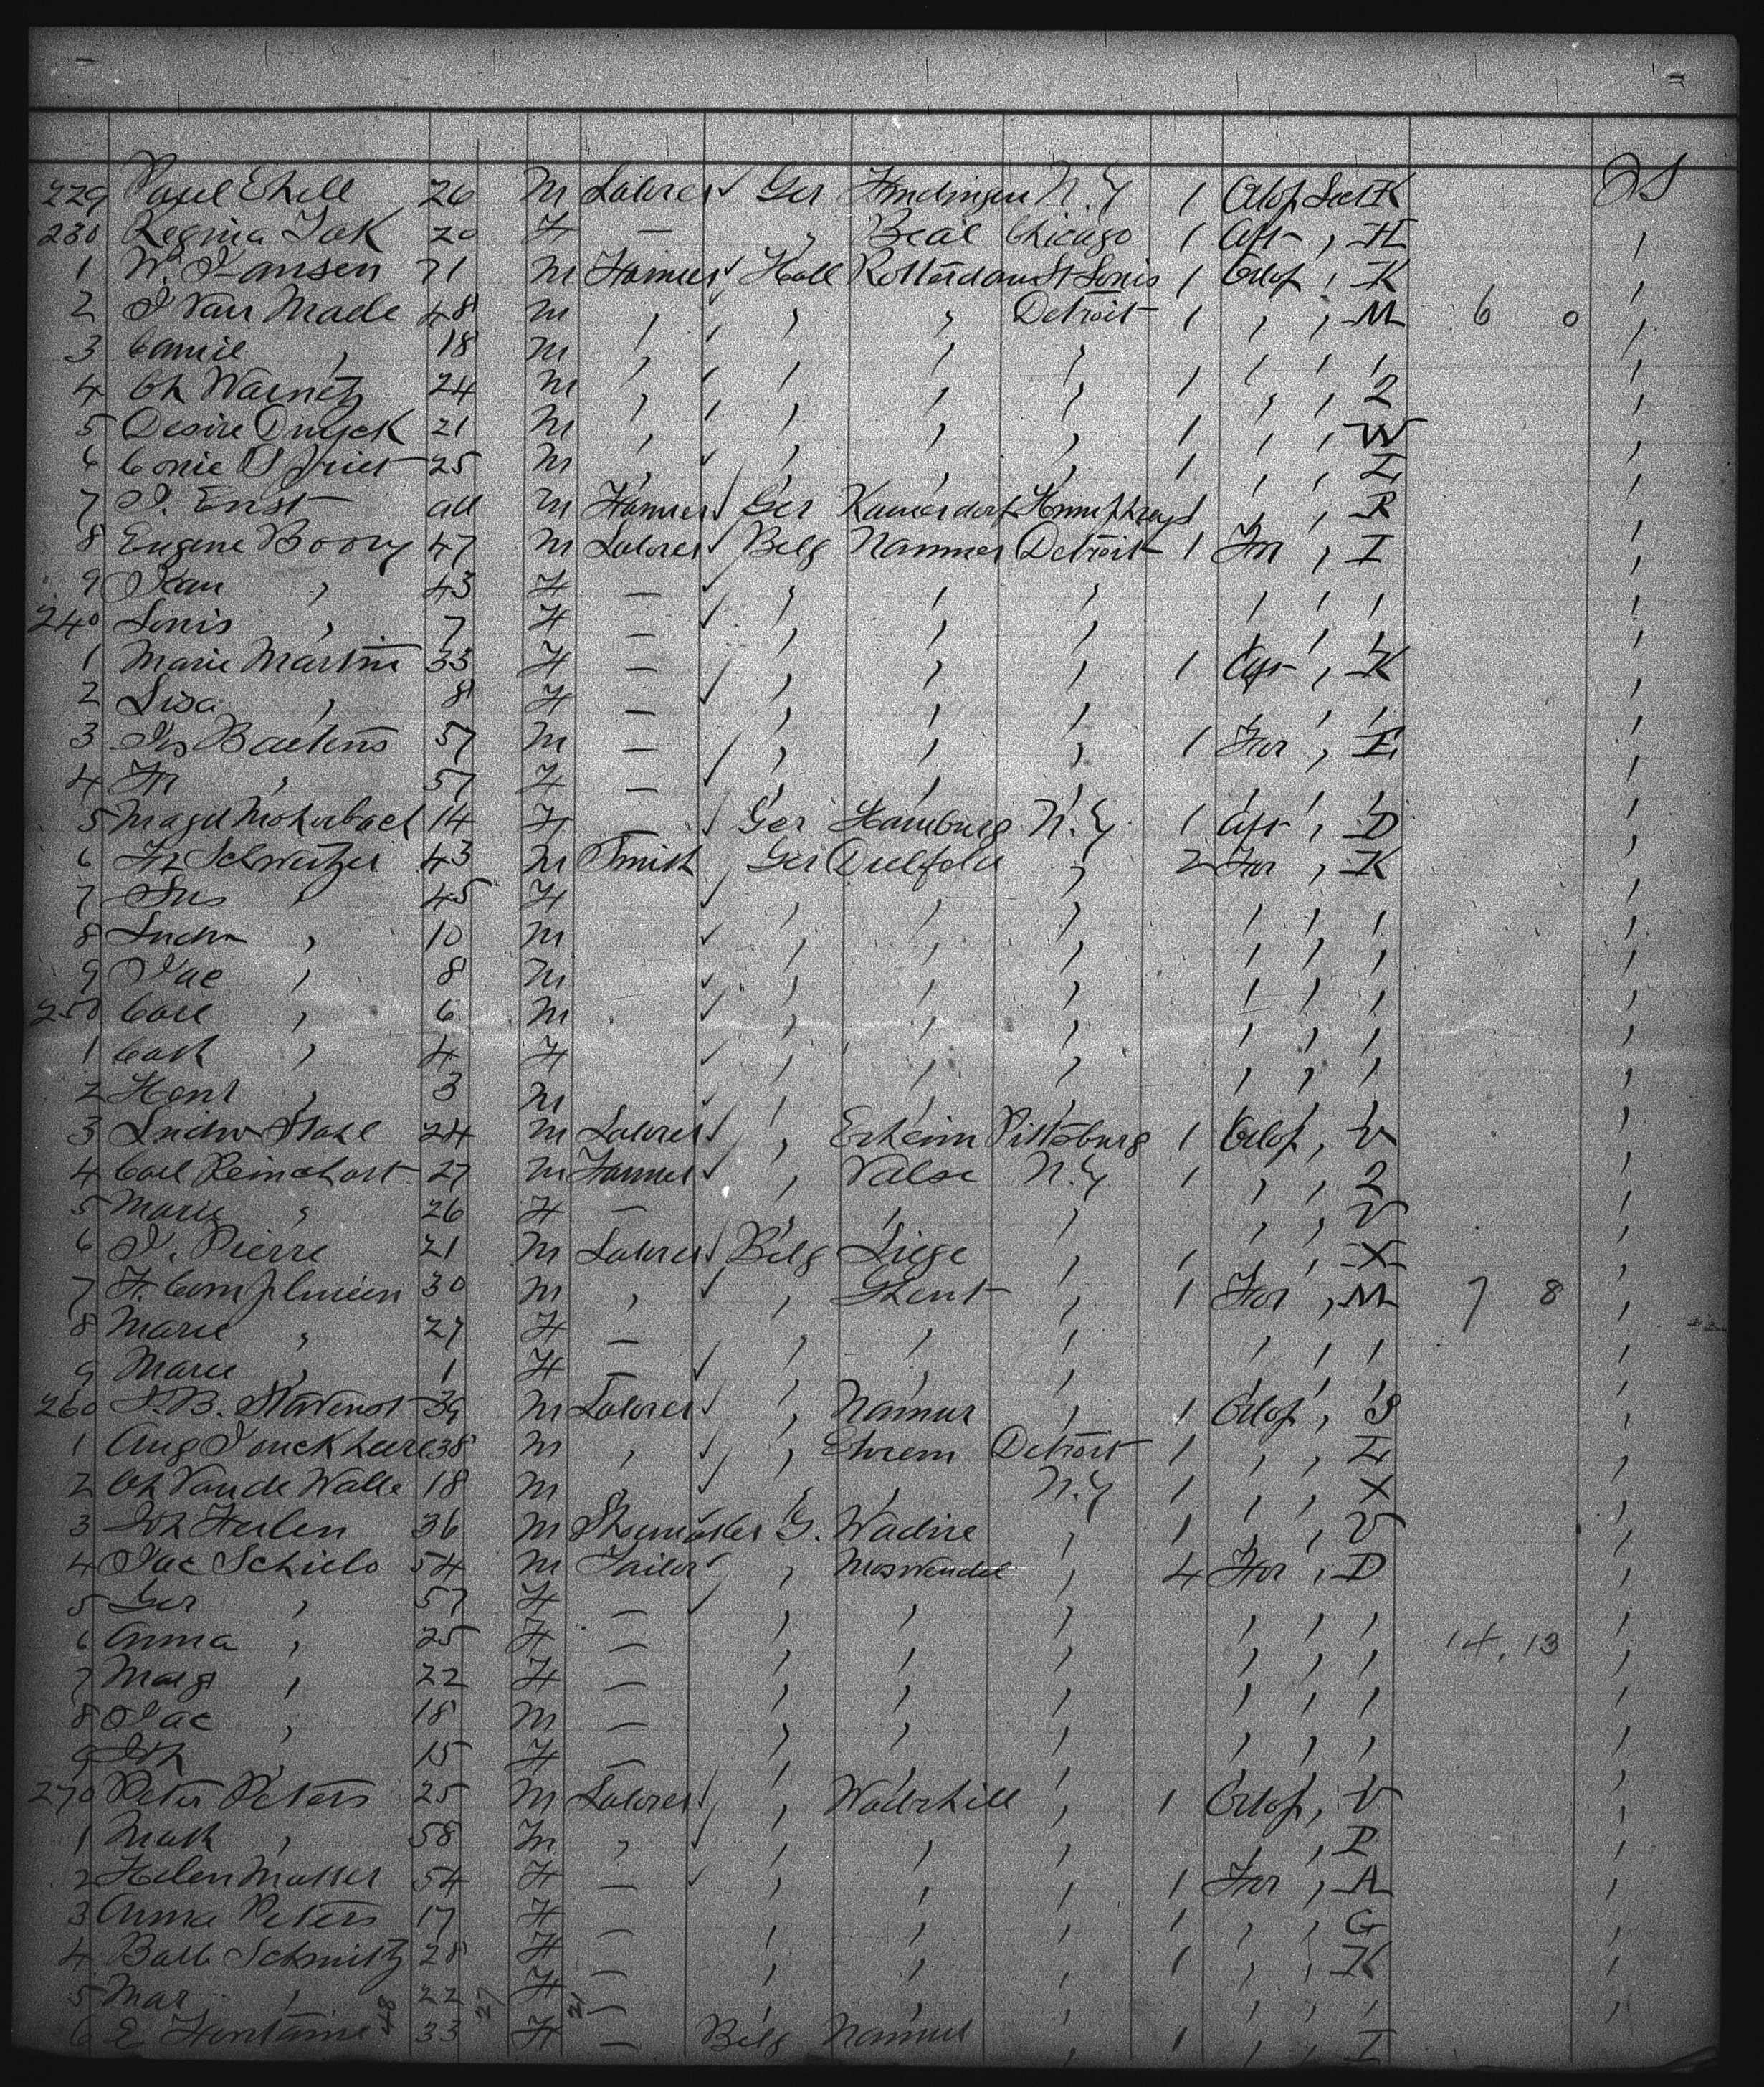 229 Paul Ehell 26 M Laborer Ger Hmdingen N.Y 1 Orlop Sect K QS
230 Regina Jok 20 F — , Beal Chicago 1 Aft , H ,
1 W. Jansen 71 M Farmer Holl Rotterdam St Louis 1 Orlop , K ,
2 J Van Made 48 M , , , Detroit 1 , , M 6 0 ,
3 Camil , 18 M , , , , , , , ,
4 Ch Warnetz 24 M , , , , 1 , , 2 ,
5 Desire Dnyck 21 M , , , , 1 , , W ,
6 25 M , , , , 1 , , L ,
7 J. Enst ad M Farmer Ger Kamerdorf Humphreys 1 , , R ,
8 Eugene Boory 47 M Laborer Belg Nammer Detroit 1 For , I ,
9 Jean , 43 F — , , , , , , ,
240 Louis , 7 F — , , , , , , ,
1 Marie Martin 33 F — , , , 1 Aft , K ,
2 Lisa , 8 F — , , , , , , ,
3 Js Baetens 57 M — , , , 1 For , E ,
4 Fr , 57 F — , , , , , , ,
5 Magd Moherbach 14 F — Ger Hamburg N.Y. 1 Aft , D ,
6 Fr Schweitzer 43 M Smith Ger Dulfeld , 2 For , K ,
7 Sus , 45 F , , , , , , ,
8 Ludw , 10 M , , , , , , ,
9 Jac , 8 M , , , , , , ,
250 Carl , 6 M , , , , , , ,
1 Cath , 4 F , , , , , , ,
2 Henr , 3 M , , , , , , ,
3 Ludw Stahl 24 M Laborer , Erheim Pittsburg 1 Orlop , V ,
4 Carl Reinehart 27 M Farmer , Valse N.Y 1 , , 2 ,
5 Marie , 26 F — , , , , , V ,
6 J. Pierre 21 M Laborer Belg Liege , 1 , , X ,
7 F. Complmien 30 M , , Ghent , 1 For , M 7 8 ,
8 Marie , 27 F — , , , , , , ,
9 Marie , 1 F — , , , , , , ,
260 J.B. Stavenot 39 M Laborer , Namur , 1 Orlop , S ,
1 Aug Jonckheere 38 M , , Ehrem Detroit 1 , , L ,
2 Ch Van de Walle 18 M , , , N.Y 1 , , X ,
3 Joh Heilen 36 M Shoemaker G. Wadire , 1 , , V ,
4 Jac Schielo 54 M Tailor , Moswendel , 4 For , D ,
5 Ger , 57 F — , , , , , , ,
6 Anna , 25 F — , , , , , , 14, 13 ,
7 Marg , 22 F — , , , , , , ,
8 Jac , 18 M — , , , , , , ,
9 Joh , 15 F — , , , , , , ,
270 Peter Peters 25 M Laborer , Wallrhill , 1 Orlop , V ,
1 Math , 58 M , , , , , P ,
2 Helen Musser 54 F — , , , 1 For , A ,
3 Anna Peters 17 F — , , , 1 , , G ,
4 Barb Schmitz 28 F — , , , 1 , , K ,
5 Mar , 22 F — , , , , , , ,
48 27 21
6 E Fontaine 33 F — Belg Namur , 1 , , I